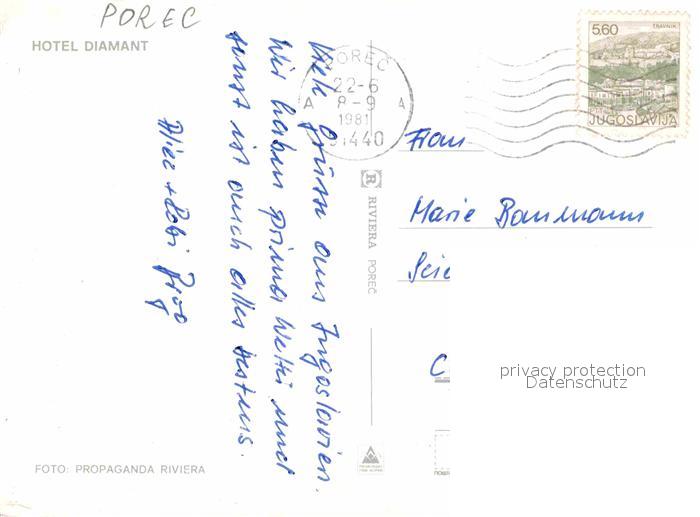 POREC
HOTEL DIAMANT
Viele Grüsse aus Jugoslawien.
Wir haben prima Wetter und
sonst ist auch alles bestens.
FOTO: PROPAGANDA RIVIERA
RIVIERA POREČ
POREČ
22-6
A 8-9 A
1981
51440
5,60
TRAVNIK
JUGOSLAVIJA
Frau
Marie Baumann
privacy protection
Datenschutz